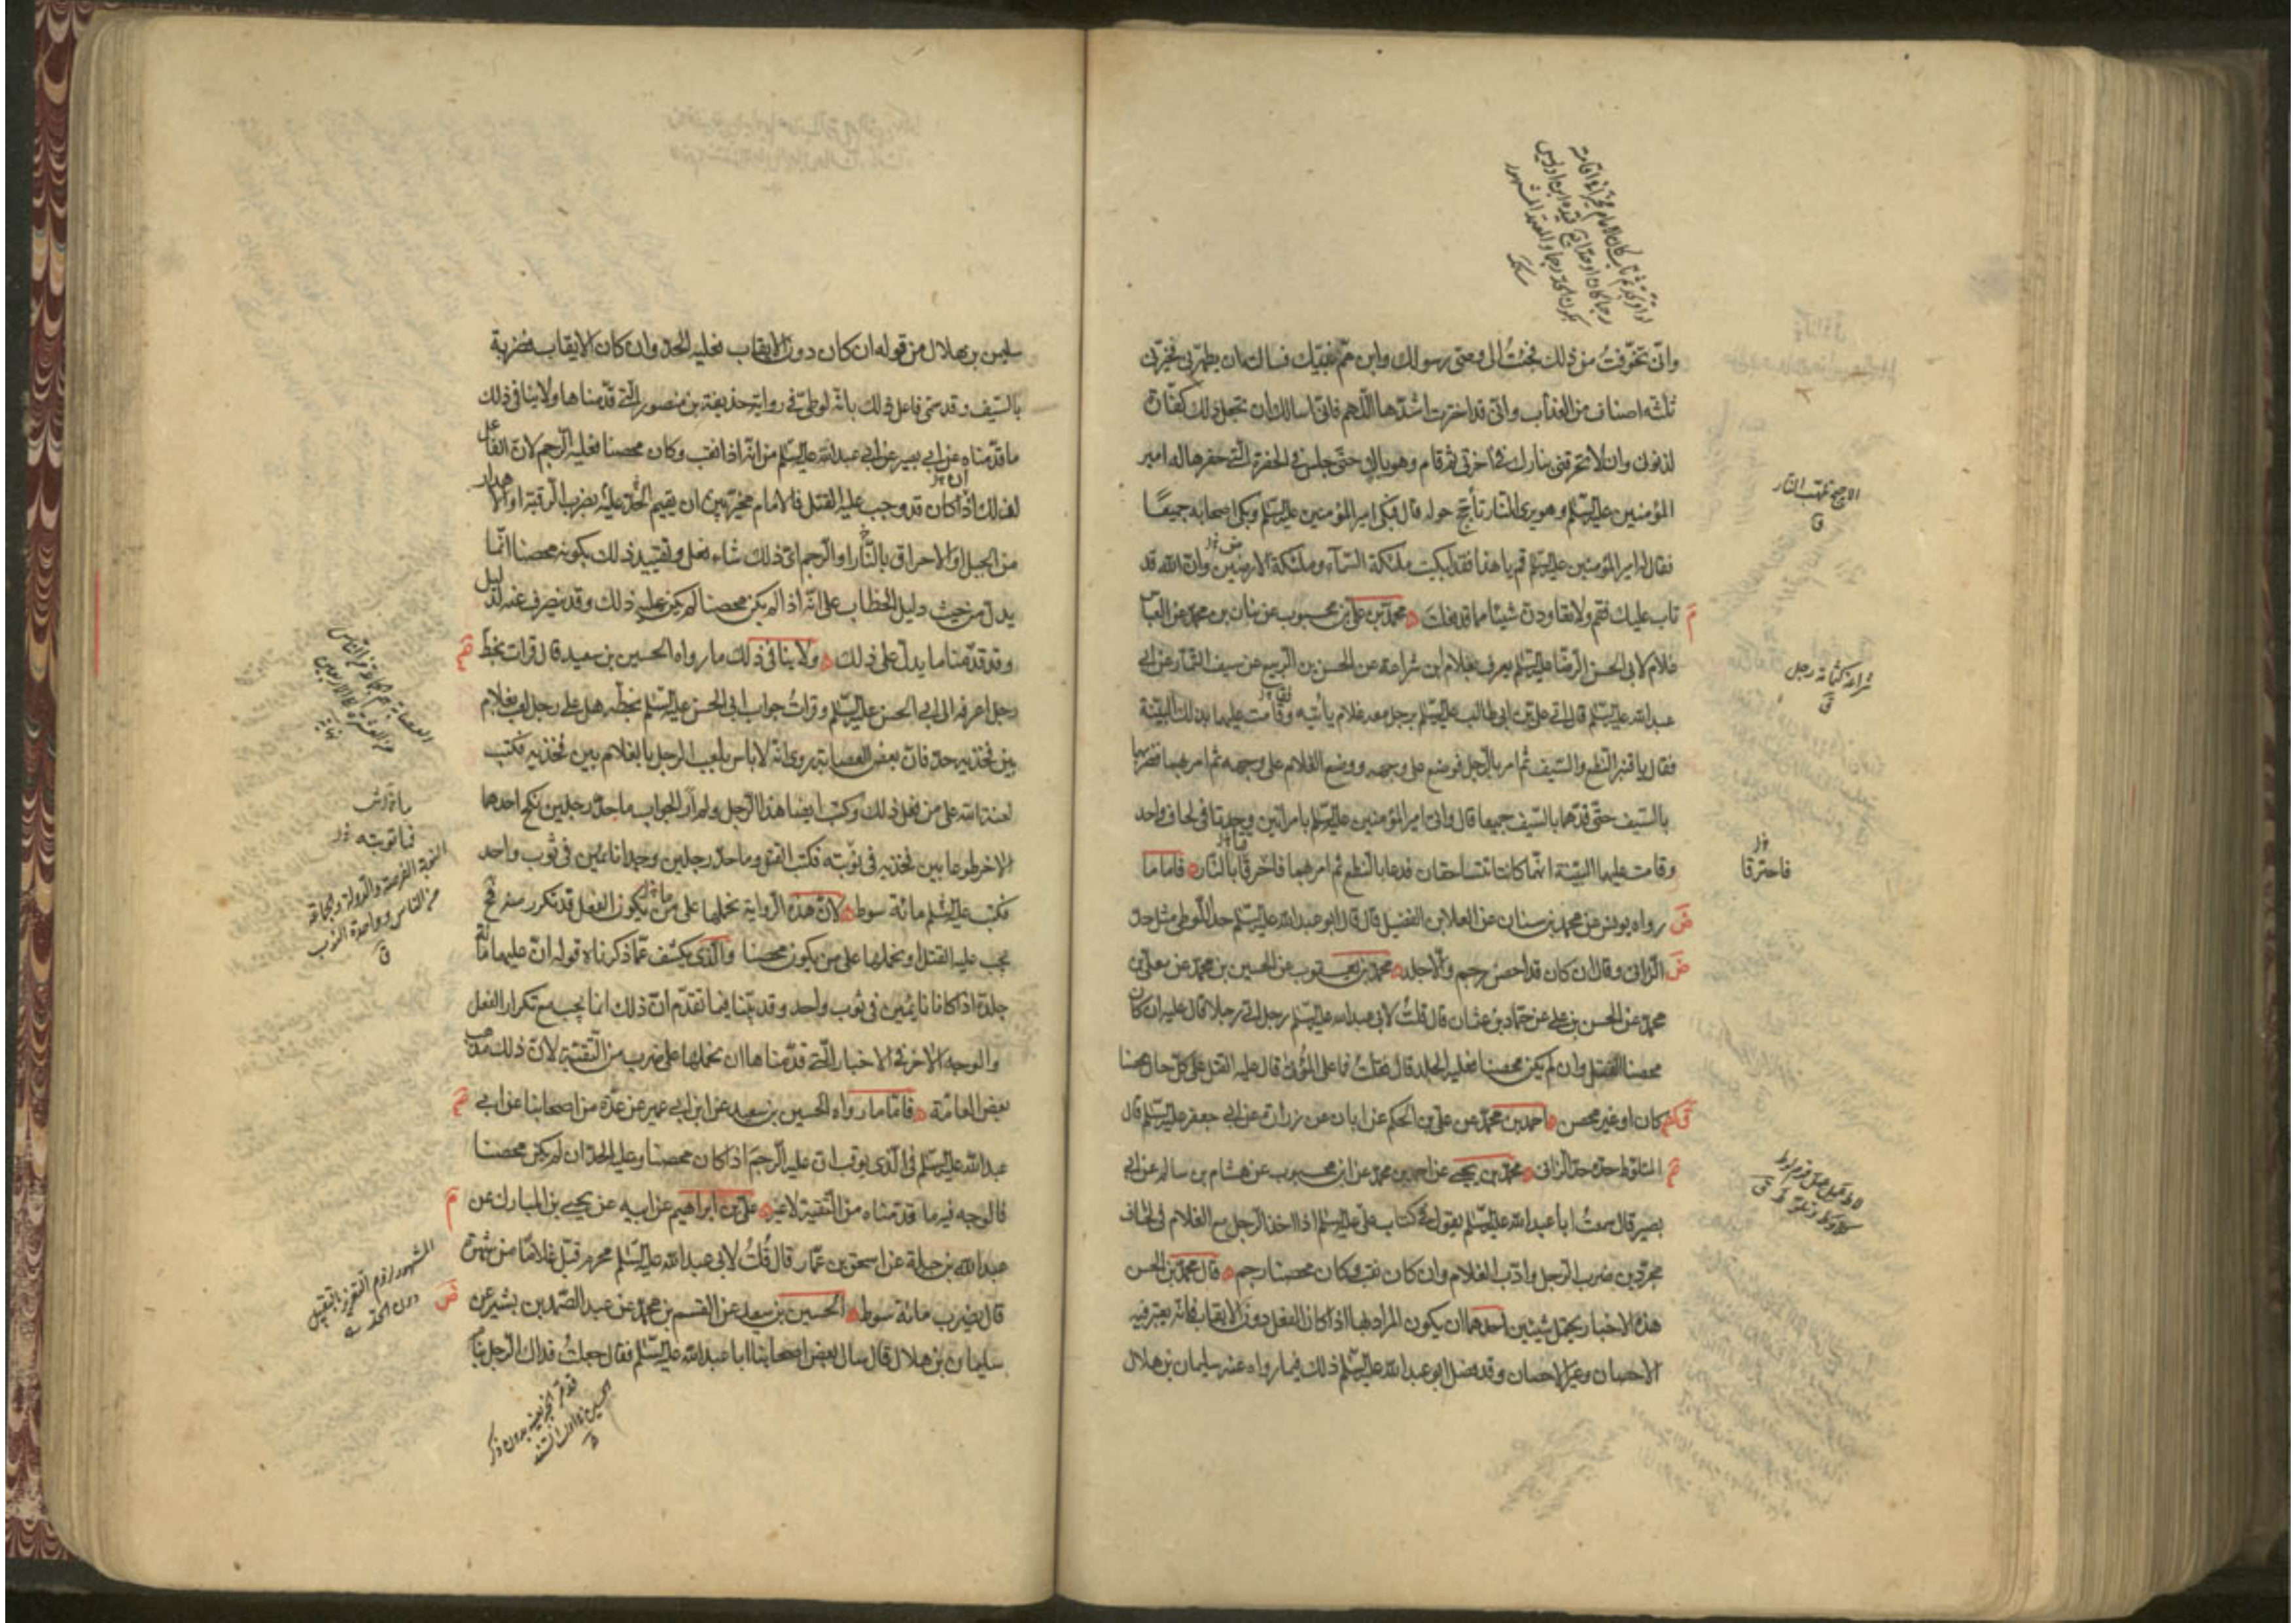 واني تخوفت من ذلك فجئت الى وصي رسولك وابن عم نبيك فسالته ان يطهرني فخيرني
ثلثة اصناف من العذاب واني قد اخترت اشدها اللهم فاني اسالك ان تجعل ذلك كفارة
لذنوبي وان لا تحرقني بنارك في اخرتي ثم قام وهو باك حتى جلس في الحفرة التي حفرها له امير
المؤمنين عليه السلم وهو يرى النار تأجج حوله قال فبكى امير المؤمنين عليه السلم وبكى اصحابه جميعًا
فقال له امير المؤمنين عليه السلم قم يا هذا فقد ابكيت ملئكة السماء وملئكة الارضين وان الله قد
تاب عليك فقم ولا تعاودن شيئا مما قد فعلت محمد بن علي بن محبوب عن بنان بن محمد عن العباس
غلام لابي الحسن الرضا عليه السلم يعرف بغلام ابن شراعة عن الحسن بن الربيع عن سيف التمار عن ابي
عبد الله عليه السلم قال اتي علي بن ابي طالب عليه السلم برجل معه غلام يأتيه وقامت عليهما بذلك البينة
فقال يا قنبر النطع والسيف ثم امر بالرجل فوضع على وجهه ووضع الغلام على وجهه ثم امر بهما فضربهما
بالسيف حتى قدهما بالسيف جميعا قال واتي امير المؤمنين عليه السلم بامراتين وجدتا في لحاف واحد
وقامت عليهما البينة انهما كانتا تتساحقان فدعا بالنطع ثم امر بهما فاحرقتا بالنار فاما ما
رواه يونس عن محمد بن سنان عن العلا بن الفضيل قال قال ابو عبد الله عليه السلم حد اللوطي مثل حد
الزاني وقال ان كان قد احصن رجم والا جلد محمد بن يعقوب عن الحسين بن محمد عن معلى بن
محمد عن الحسن بن علي عن حماد بن عثمان قال قلت لابي عبد الله عليه السلم رجل اتى رجلا قال عليه ان كان
محصنا القتل وان لم يكن محصنا فعليه الجلد قال فقلت فما على المؤتى قال عليه القتل على كل حال محصنا
كان او غير محصن احمد بن محمد عن علي بن الحكم عن ابان عن زرارة عن ابي جعفر عليه السلم قال
المتلوط حده حد الزاني محمد بن يحيى عن احمد بن محمد عن ابن محبوب عن هشام بن سالم عن ابي
بصير قال سمعت ابا عبد الله عليه السلم يقول في كتاب علي عليه السلم اذا اخذ الرجل مع الغلام في لحاف
مجردين ضرب الرجل وادب الغلام وان كان ثقب وكان محصنا رجم قال محمد بن الحسن
هذه الاخبار يحتمل شيئين احدهما ان يكون المراد بها اذا كان الفعل دون الايقاب فانه يعتبر فيه
الاحصان وغير الاحصان وقد فصل ابو عبد الله عليه السلم ذلك فيما رواه عنه سليمان بن هلال
الاجيج تلهب النار
ق
شراعة كثمامة رجل
ق
فاحترقا
سليمن بن هلال من قوله ان كان دون الايقاب فعليه الحد وان كان الايقاب فضربة
بالسيف وقد سمى فاعل ذلك بانه لوطي في رواية حذيفة بن منصور التي قدمناها ولا ينافي ذلك
ما قدمناه عن ابي بصير عن ابي عبد الله عليه السلم من انه اذا ثقب وكان محصنا فعليه الرجم لان الفاعل
لذلك اذا كان قد وجب عليه القتل فالامام مخير بين ان يقيم الحد عليه بضرب الرقبة او الاهدار
من الجبل او الاحراق بالنار او الرجم اي ذلك شاء فعل وتقييد ذلك بكونه محصنا انما
يدل من حيث دليل الخطاب على انه اذا لم يكن محصنا لم يكن عليه ذلك وقد ينصرف عنه لدليل
وقد قدمنا ما يدل على ذلك ولا ينافي ذلك ما رواه الحسين بن سعيد قال قرات بخط
رجل اعرفه الى ابي الحسن عليه السلم وقرات جواب ابي الحسن عليه السلم بخطه هل على رجل لعب بغلام
بين فخذيه حد فان بعض العصابة روى انه لا باس بلعب الرجل بالغلام بين فخذيه فكتب
لعنة الله على من فعل ذلك وكتب ايضا هذا الرجل ولم ار الجواب ما حد رجلين نكح احدهما
الاخر طوعا بين فخذيه في توبته فكتب القتل وما حد رجلين وجدا نائمين في ثوب واحد
فكتب عليه السلم مائة سوط لان هذه الرواية نحملها على من يكون الفعل قد تكرر منه فح
يجب عليه القتل او نحملها على من يكون محصنا والذي يكشف عما ذكرناه قوله ان عليهما مائة
جلدة اذا كانا نائمين في ثوب واحد وقد بينا فيما تقدم ان ذلك انما يجب مع تكرار الفعل
والوجه الاخر في الاخبار التي قدمناها ان نحملها على ضرب من التقية لان ذلك مذهب
بعض العامة فاما ما رواه الحسين بن سعيد عن ابن ابي عمير عن عدة من اصحابنا عن ابي
عبد الله عليه السلم في الذي يوقب ان عليه الرجم اذا كان محصنا وعليه الحد ان لم يكن محصنا
فالوجه فيه ما قدمناه من التقية لا غير علي بن ابراهيم عن ابيه عن يحيى بن المبارك عن
عبد الله بن جبلة عن اسحق بن عمار قال قلت لابي عبد الله عليه السلم محرم قبل غلاما من شهوة
قال يضرب مائة سوط الحسين بن سعيد عن القسم بن محمد عن عبد الصمد بن بشير عن
سليمان بن هلال قال سال بعض اصحابنا ابا عبد الله عليه السلم فقال جعلت فداك الرجل ينام
النوبة الفرصة والدولة والجماعة
من الناس وواحدة النوب
ق
المشهور لزوم التعزير بالتقبيل
دون الحد